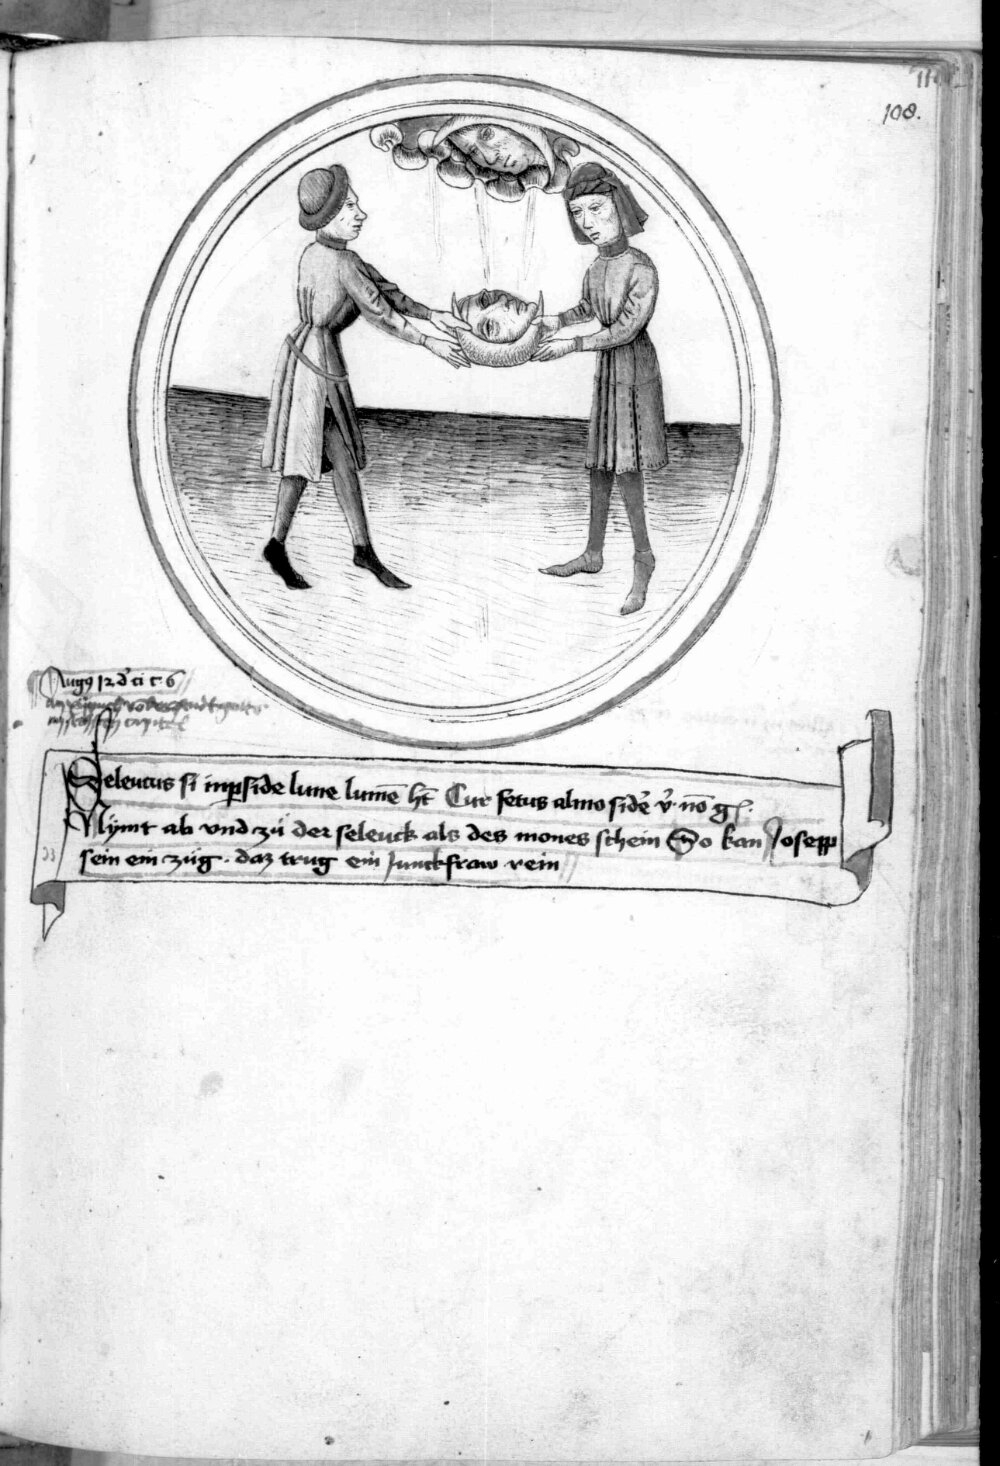 108.
Augꝰ 12 d' ci c 6
Seleucus si inpside lune lumē ht̄ Cur fetus almo sidē v' nō g̃.
Nÿmt ab vnd zů der seleuck als des mones schein So kan Josepp
sein ein züg · daz trug ein Junckfraw rein